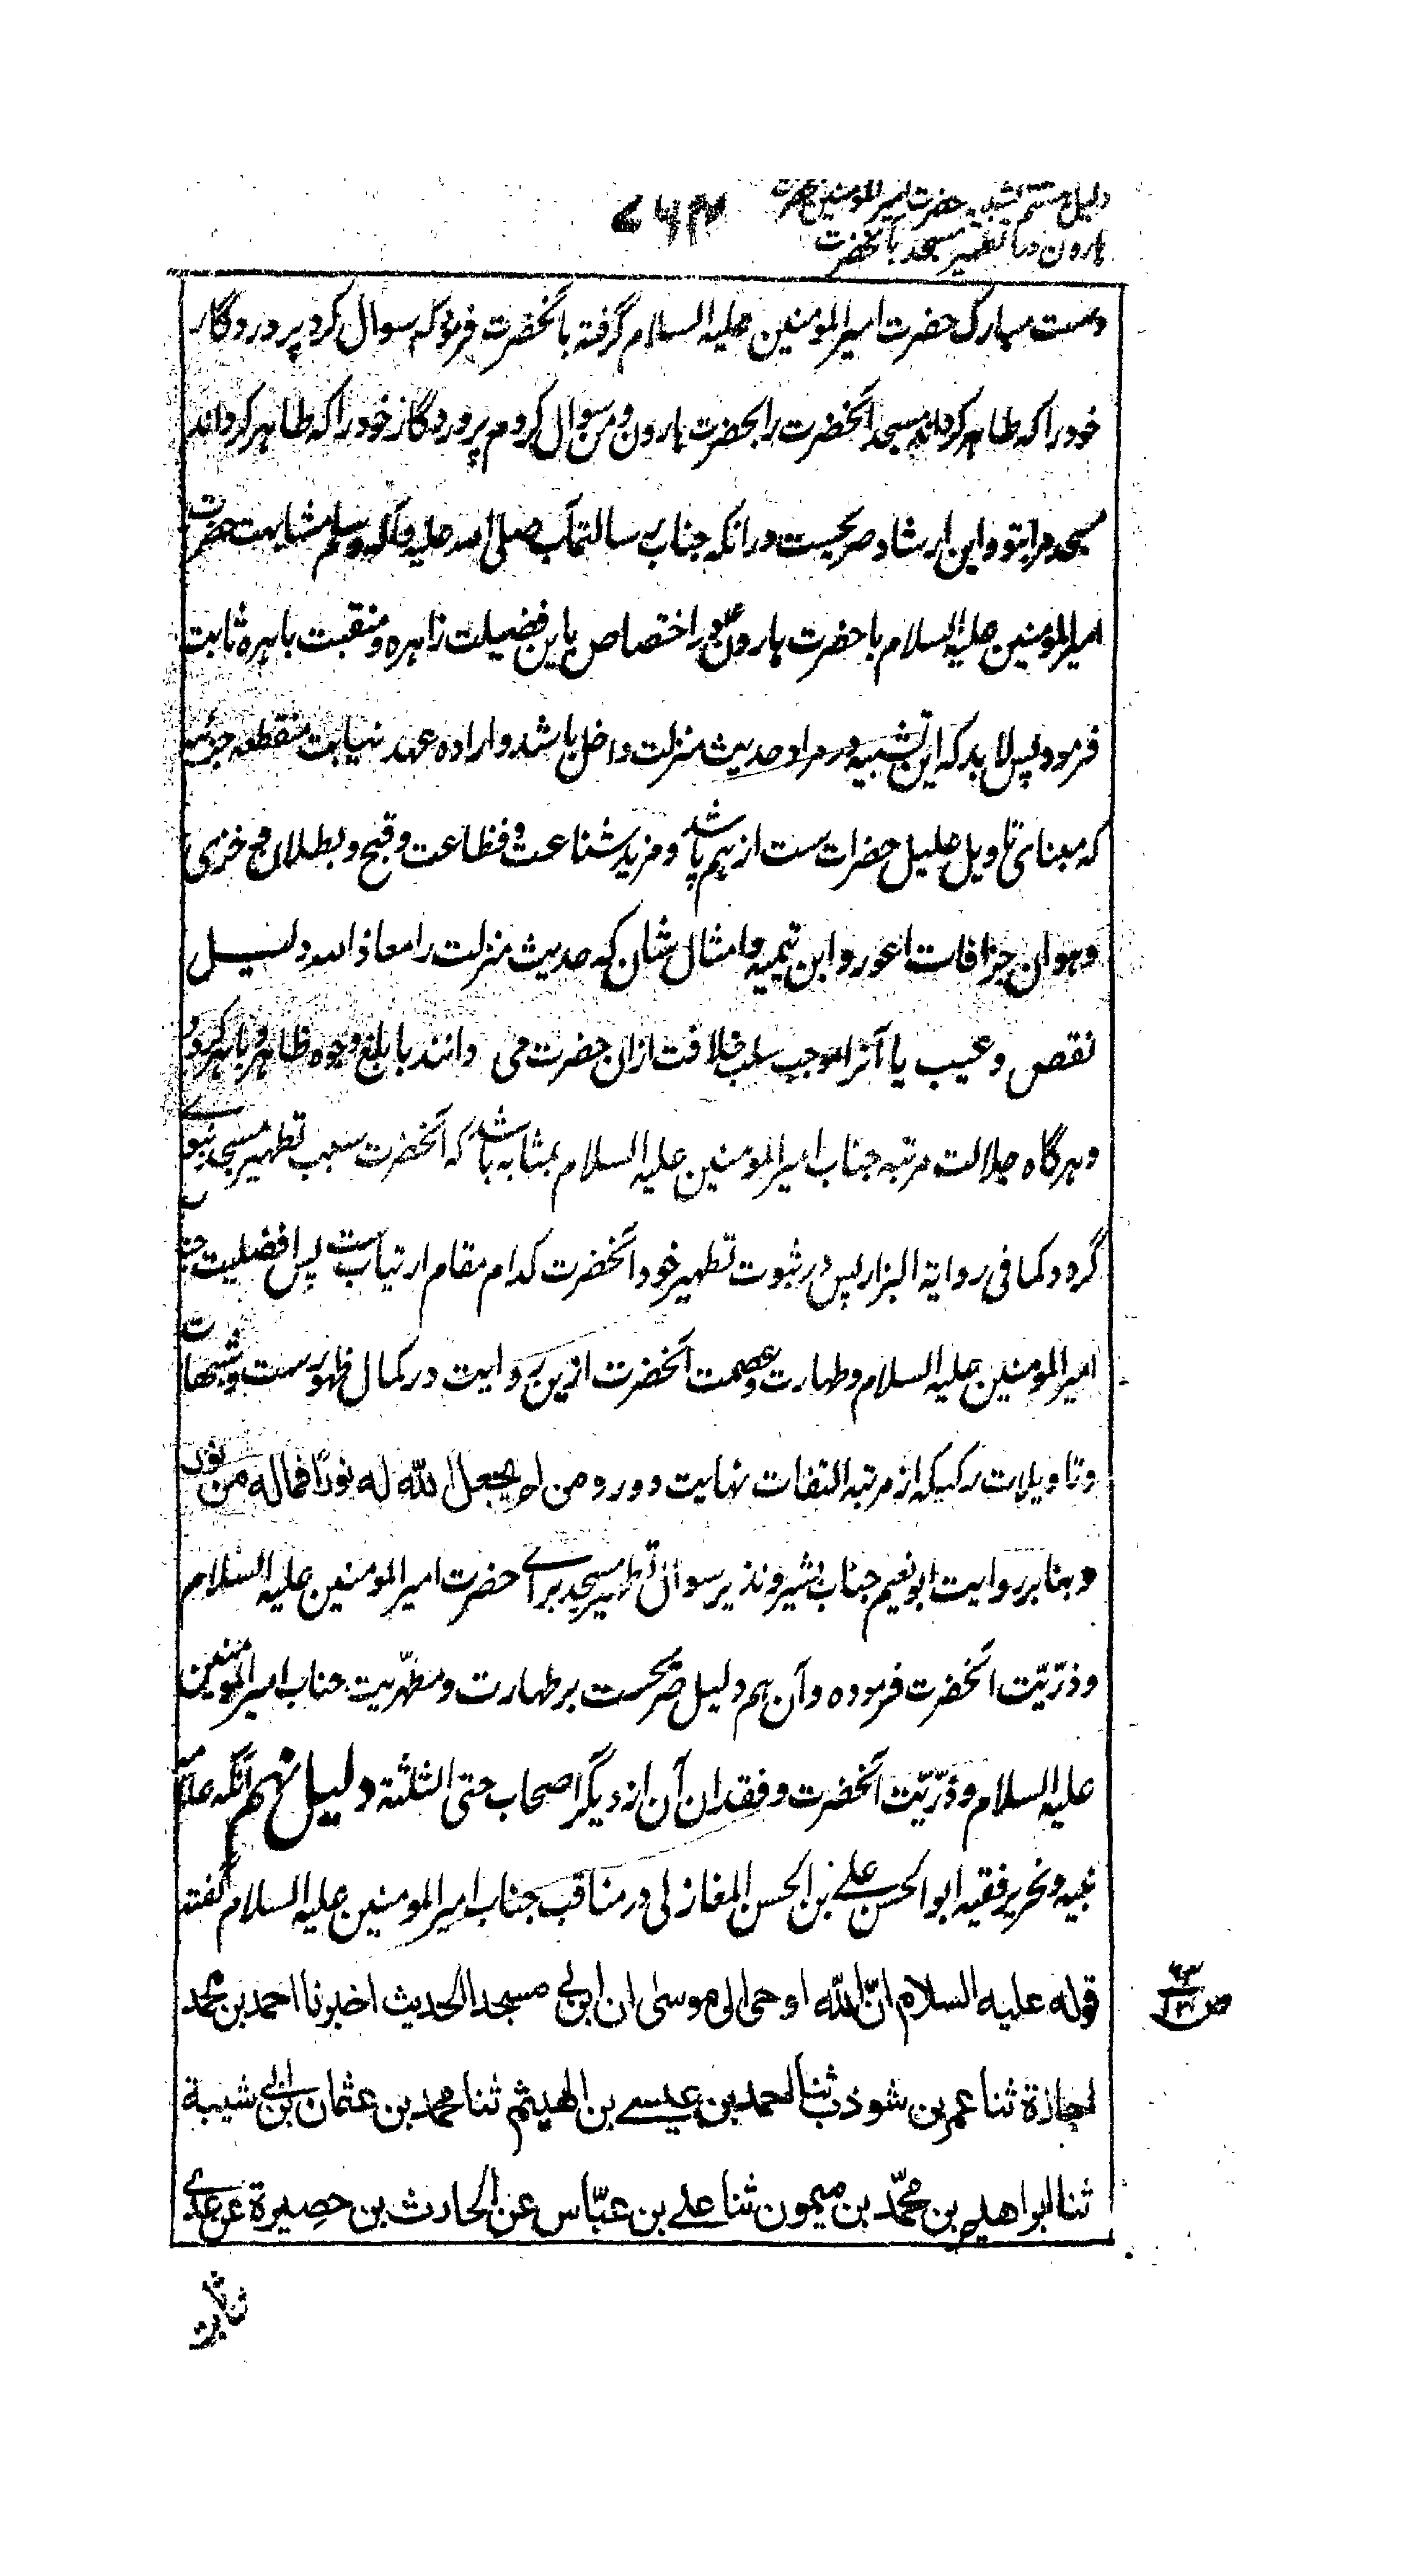 دلیل هشتم تشبیه حضرت امیر المومنین بحضرت
هارون در تطهیر مسجد بآنحضرت
دست مبارک حضرت امیر المومنین علیه السلام گرفته بآنحضرت فرمود که سوال کرد پروردگار
خود را که طاهر گرداند مسجد آنحضرت را بحضرت هارون و من سوال کردم پروردگار خود را که طاهر گرداند
مسجد مرا بتو و این ارشاد صریحست در انکه جناب رسالتمآب صلی الله علیه و آله و سلم مشابهت حضرت
امیر المومنین علیه السلام با حضرت هارون ع در اختصاص باین فضیلت زاهره و منقبت باهره ثابت
فرمود پس لابد که این تشبیه در مراد حدیث منزلت داخل باشد و اراده عهد نیابت منقطعه جزئیه
که مبنای تاویل علیل حضرات ست از هم پاشد و مزید شناعت و فظاعت و قبح و بطلان و خزی
و هوان جزافات اعور و ابن تیمیه و امثال شان که حدیث منزلت را معاذ الله دلیل
نقص و عیب یا آنرا موجب سلب خلافت ازان حضرت می دانند بابلغ وجوه ظاهر و باهر گردد
و هرگاه جلالت مرتبه جناب امیر المومنین علیه السلام بمثابه باشد که آنحضرت سبب تطهیر مسجد نبوی
گردد کما فی روایة البزار پس در ثبوت تطهیر خود آنحضرت کدام مقام ارتیاب ست پس افضلیت جناب
امیر المومنین علیه السلام و طهارت و عصمت آنحضرت ازین روایت در کمال ظهورست و شبهات
و تاویلات رکیکه از مرتبه التفات نهایت دور و من لم یجعل الله له نورا فماله من نور
و بنابر روایت ابونعیم جناب بشیر و نذیر سوال تطهیر مسجد برای حضرت امیر المومنین علیه السلام
و ذرّیّت آنحضرت فرموده و آن هم دلیل صریحست بر طهارت و مطهّریت جناب امیر المومنین
علیه السلام و ذرّیّت آنحضرت و فقدان آن از دیگر اصحاب حتی الثلثة دلیل نهم آنکه علامه
نبیه و نحریر فقیه ابو الحسن علے بن الحسن المغازلی در مناقب جناب امیر المومنین علیه السلام گفته
قوله علیه السلام انّ الله اوحی الی موسی ان ابن لی مسجدا الحدیث اخبرنا احمد بن محمد
اجازة ثنا عمر بن شوذب ثنا احمد بن عیسے بن الهیثم ثنا محمد بن عثمان بن ابی شیبة
ثنا ابراهیم بن محمّد بن میمون ثنا علے بن عبّاس عن الحارث بن حصیرة عن عدی